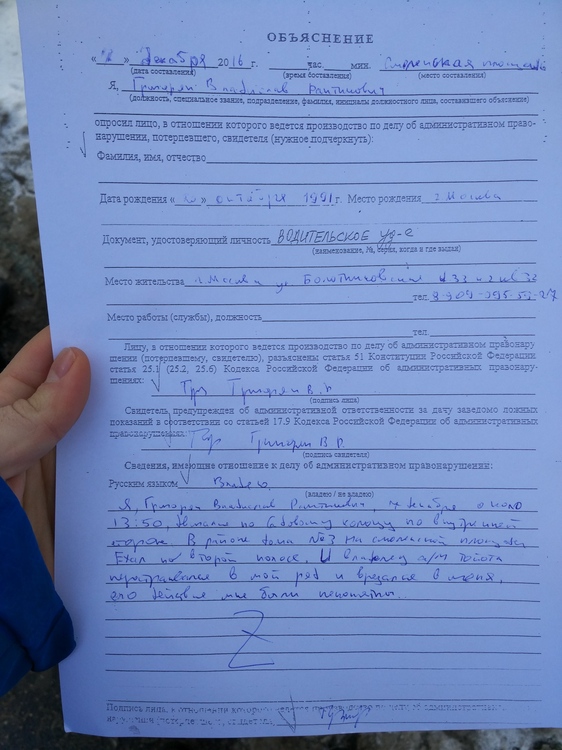 ОБЪЯСНЕНИЕ
« » декабря 2016 г. час. мин. Смоленская площадь
(дата составления) (время составления) (место составления)
Я, Григорян Владислав
(должность, специальное звание, подразделение, фамилия, инициалы должностного лица, составившего объяснение)
опросил лицо, в отношении которого ведется производство по делу об административном право-
нарушении, потерпевшего, свидетеля (нужное подчеркнуть):
Фамилия, имя, отчество
Дата рождения « » октября 1991 г. Место рождения г Москва
Документ, удостоверяющий личность ВОДИТЕЛЬСКОЕ уд-е
(наименование, №, серия, когда и где выдан)
Место жительства г. Москва ул Болотниковская
тел.
Место работы (службы), должность
тел.
Лицу, в отношении которого ведется производство по делу об административном правонару-
шении (потерпевшему, свидетелю), разъяснены статья 51 Конституции Российской Федерации
статья 25.1 (25.2, 25.6) Кодекса Российской Федерации об административных правонару-
шениях: Григорян В. Р
(подпись лица)
Свидетель предупрежден об административной ответственности за дачу заведомо ложных
показаний в соответствии со статьей 17.9 Кодекса Российской Федерации об административных
правонарушениях: Григорян В Р.
(подпись свидетеля)
Сведения, имеющие отношение к делу об административном правонарушении:
Русским языком Владею
(владею / не владею)
Я, Григорян Владислав декабря около
13:50, по Садовому кольцу по внутренней
стороне. В районе дома №3 на смоленской площади
Ехал по второй полосе, a/м Тойота
в мой ряд и врезался в меня,
его действия мне были непонятны.
Z
Подпись лица, в отношении которого ведется производство по делу об административном